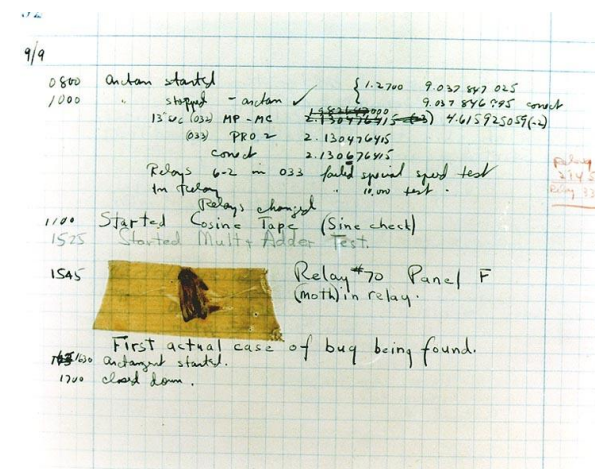 9/9
0800 Antan started
1000 " stopped - antan ✓ { 1.2700 9.037 847 025
9.037 846 795 conect
13"uc (032) MP - MC 2.130476415 (-3) 4.615925059(-2)
(033) PRO 2 2.130476415
conect 2.130676415
Relays 6-2 in 033 failed special speed test
In Relay " 10,000 test .
Relays changed
1100 Started Cosine Tape (Sine check)
1525 Started Mult + Adder Test.
1545 Relay #70 Panel F
(moth) in relay.
First actual case of bug being found.
1630 antangent started.
1700 closed down .
Relay
Relay 33